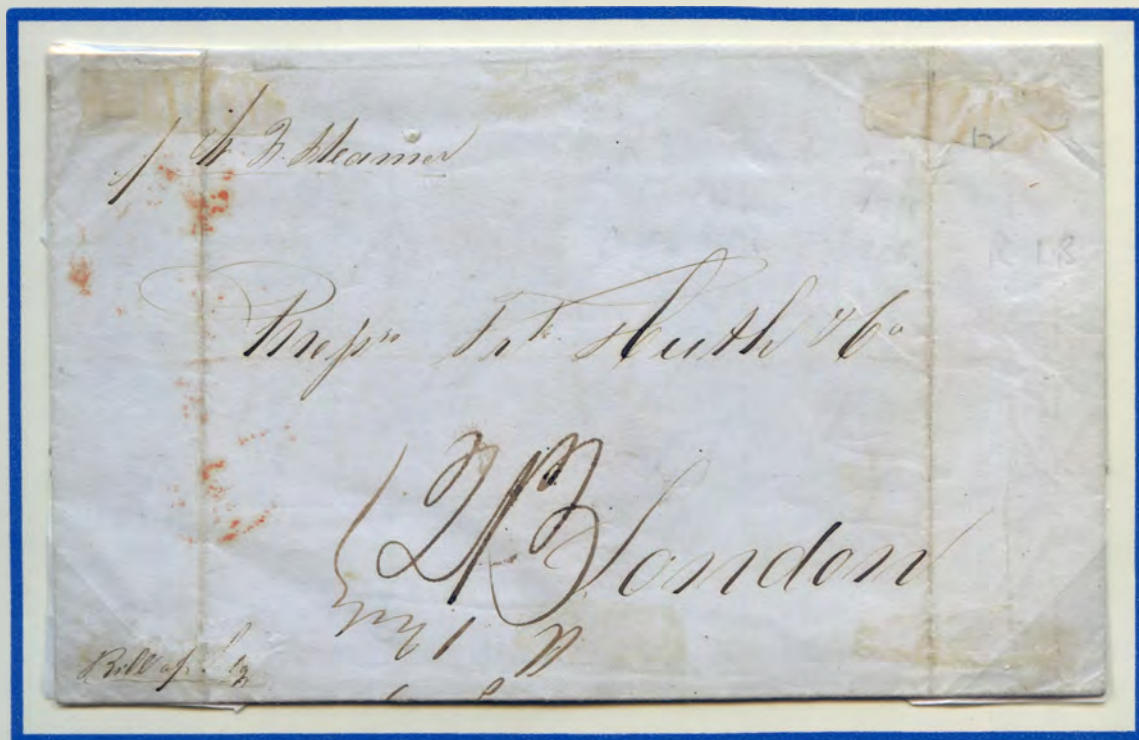 p W. I. Steamer
Messrs Fr.k Huth & Co
2/3
London
Bill of Ldg